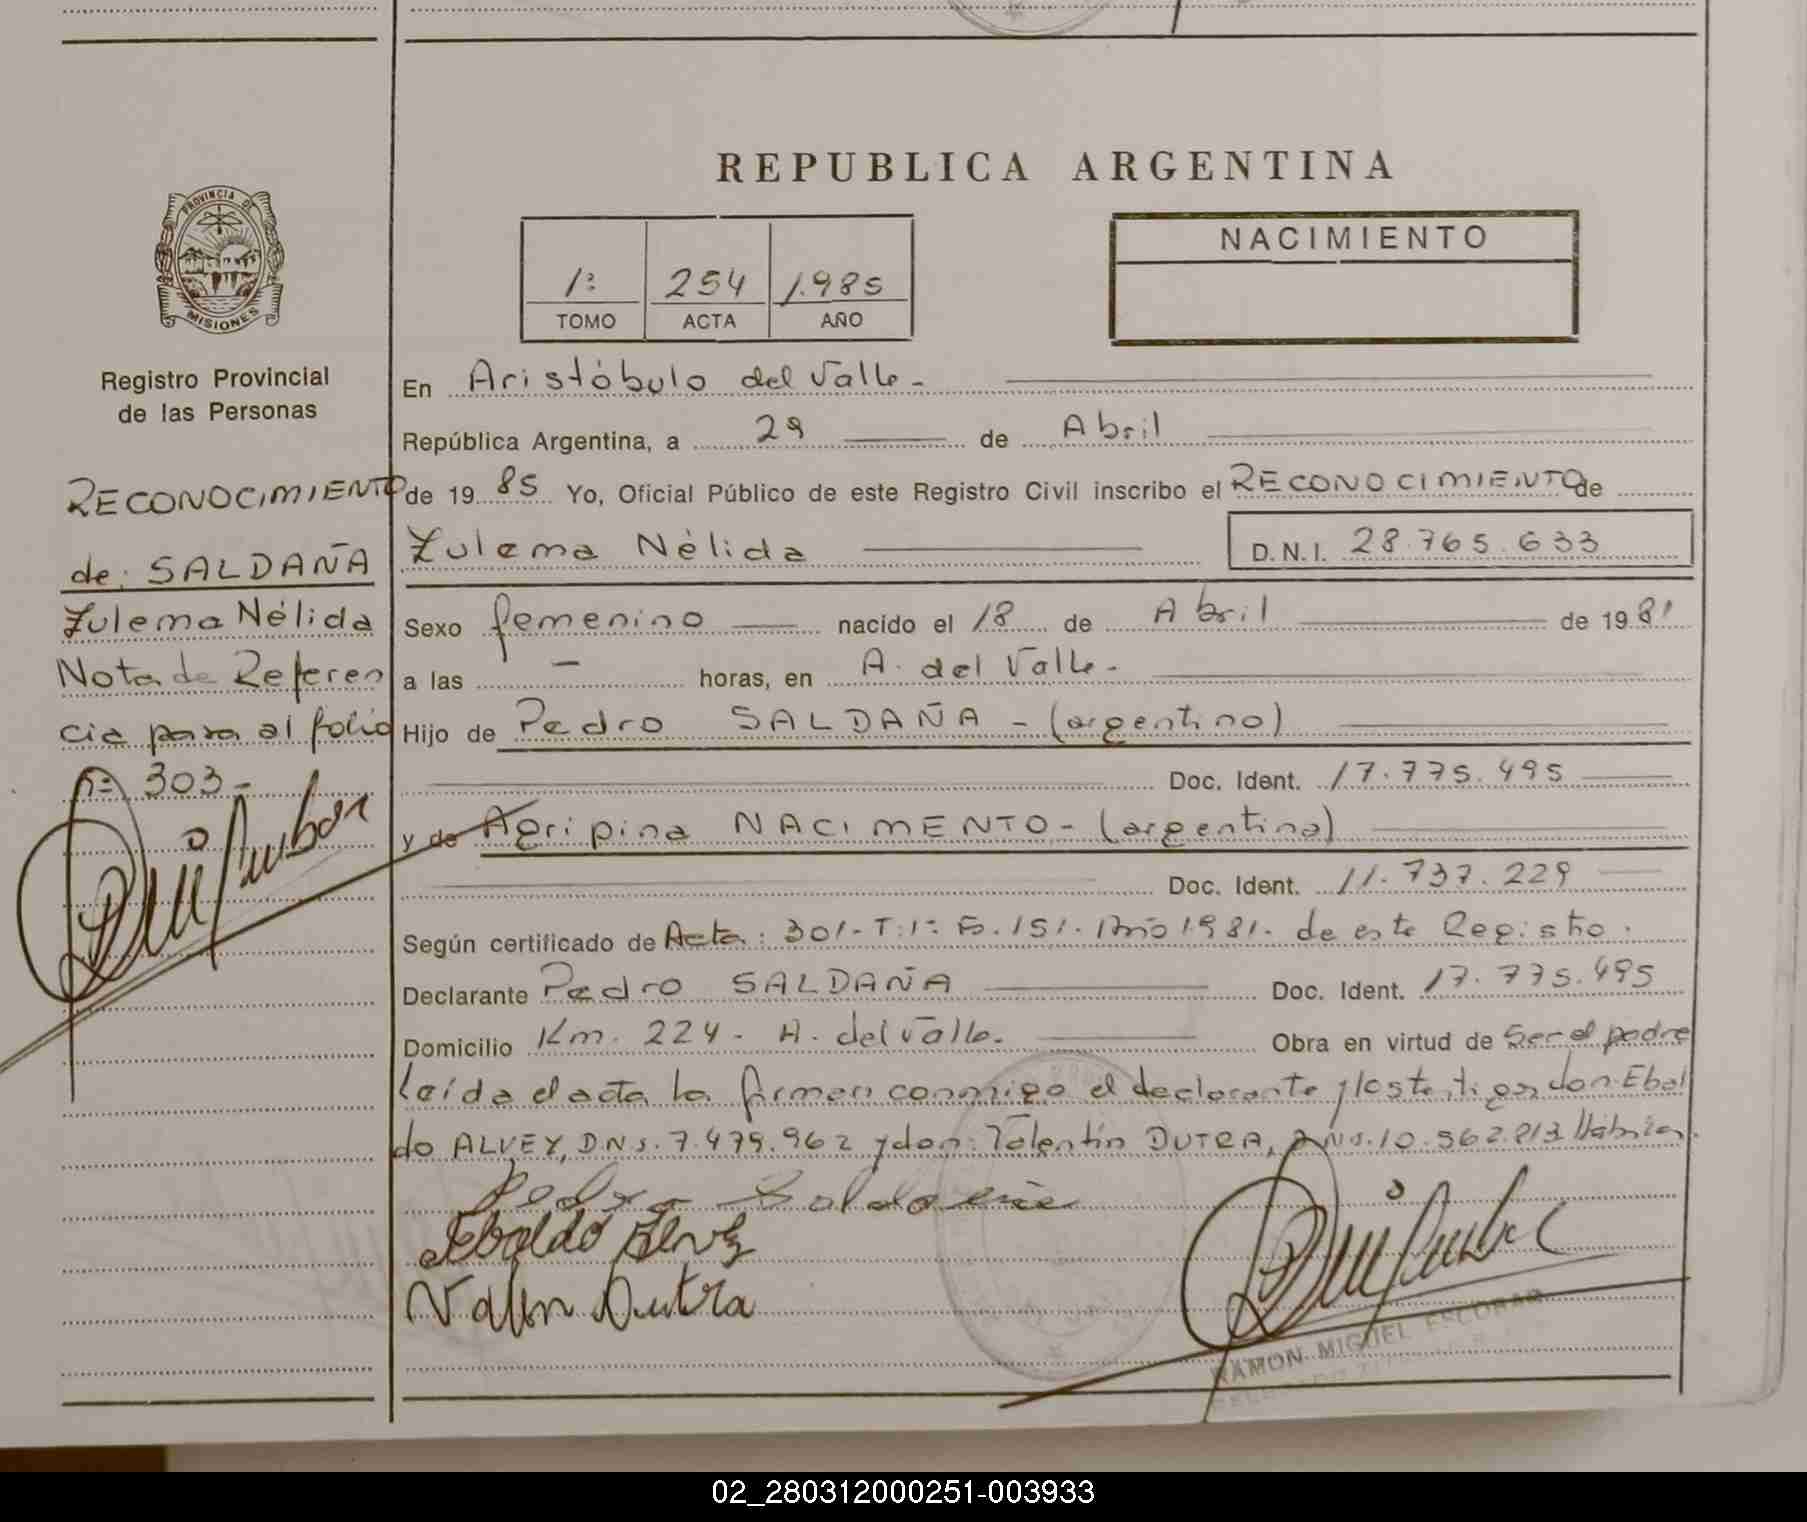 REPUBLICA ARGENTINA
PROVINCIA DE
MISIONES
1º 254 1.985
TOMO ACTA AÑO
NACIMIENTO
Registro Provincial
de las Personas
RECONOCIMIENTO
de: SALDAÑA
Zulema Nélida
Nota de Referen
cia para al folio
nº 303-
En Aristóbulo del Valle-
República Argentina, a 29 de Abril
de 1985 Yo, Oficial Público de este Registro Civil inscribo el RECONOCIMIENTO de
Zulema Nélida D.N.I. 28.765.633
Sexo femenino nacido el 18 de Abril de 1981
a las - horas, en A. del Valle-
Hijo de Pedro SALDAÑA - (argentino)
Doc. Ident. 17.775.495
y de Agripina NACIMENTO - (argentina)
Doc. Ident. 11.737.229
Según certificado de Acta: 301- T: 1º Fº. 151. Año 1981. de este Registro.
Declarante Pedro SALDAÑA Doc. Ident. 17.775.495
Domicilio Km. 224 - A. del Valle. Obra en virtud de Ser el padre
leída el acta la firman conmigo el declarante y los testigos don Ebal
do ALVEY, DNI. 7.479.962 y don: Valentín DUTRA, DNI. 10.562.813 Hábiles.
Pedro Saldaña
Ebaldo Alvez
Valen Dutra
RAMON MIGUEL ESCOBAR
02_280312000251-003933